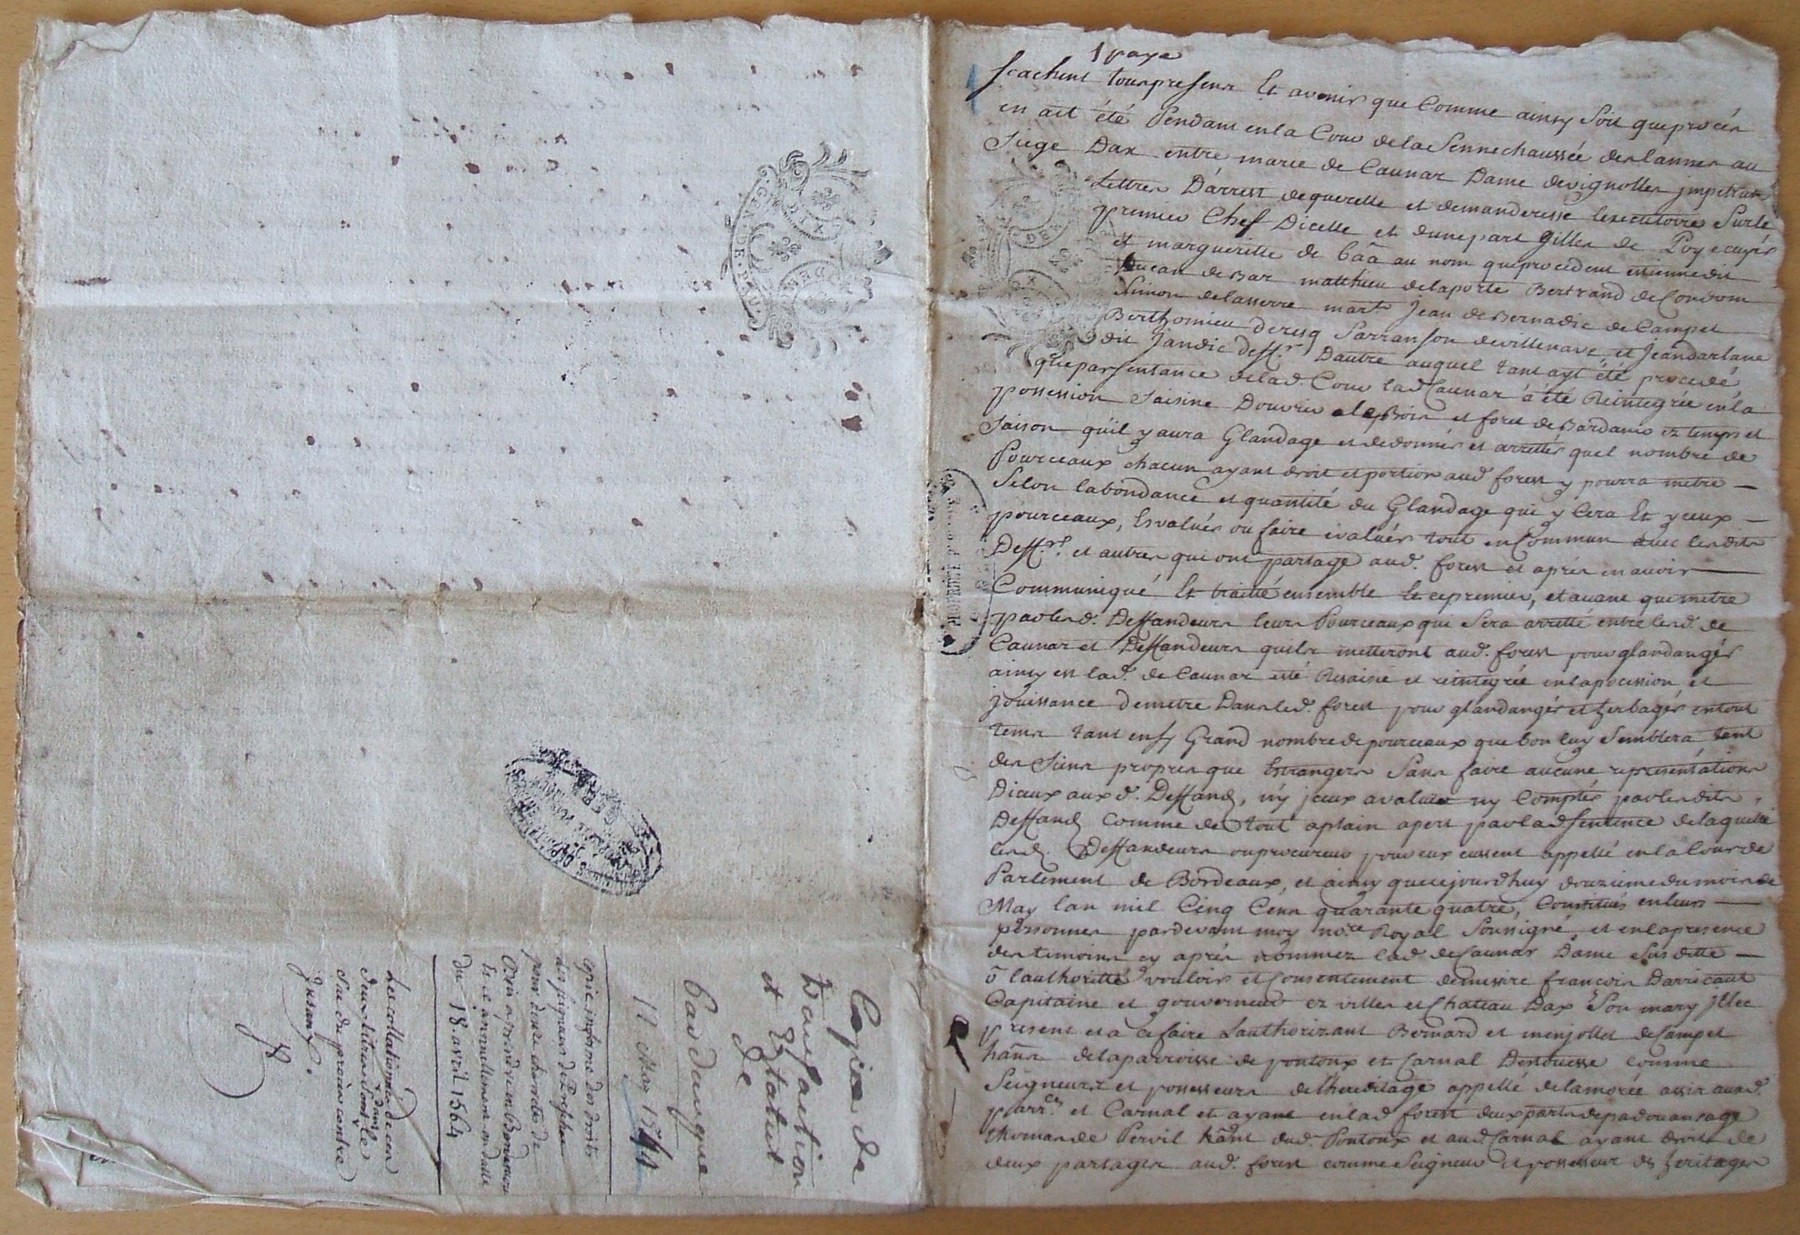 1 page
scachent tous presens Et avenir que Comme ainsy soit que procés
en ait été Pendant en la Cour de la Sennechaussée des lannes au
Siege Dax entre marie de Caunar Dame de vignolles impetran
Lettres D'arrest de querelle et demanderesse l'executoire Sur le
premier Chef Dicelle et d'une part Gilles de Poy ecuyér
et margueritte de Cââ au nom que procedent etienne dit
de Bar matthieu de laporte Bertrand de Condom
Simon de lasserre mart. Jean de Bernadic de Campet
Berthomieu Sarranson de villenave, et Jean darlane
dit Jandic deff.rs Dautre auquel tant ayt été procedé
que par sentance de lad. Cour lad Caunar á été Réintegrée en la
possession saisine Douvrir le Bois et foret de Bardanis ez temps et
saison quil y aura Glandage et de donnér et arrettér quel nombre de
Pourceaux chacun ayant droit et portion aud. forest y pourra metre —
Selon labondance et quantité du Glandage qui y Cera Et yceux —
pourceaux, Evaluér ou faire évaluér tout en Commun avec lesdits
Deff.rs et autres qui ont partage aud. forest et aprés en avoir —
Communiqué Et traitté ensemble le premier, et avant que metre
par lesd. Deffandeurs leurs Pourceaux qui Sera arretté entre lesd. de
Caunar et Deffandeurs quils metteront aud. forest pour glandangér
ainsy est lad. de Caunar esté Resaisie et reintegrée en la pocession et
jouissance de metre Dans led. forest pour glandangér et herbagér en tout
tems tant en sy Grand nombre de pourceaux que bon luy semblera tant
des siens propres que Estrangers Sans faire aucune representations
Diceux aux d. Deffand, n'y iceux avaluer ny Comptér par lesdits
Deffand Comme de tout aplain apert par lad sentence de laquelle
lesd Deffandeurs ou procureur pour eux eussent appellé en la Cour de
Parlement de Bordeaux, et ainsy que cejourd'huy douzieme du mois de
May lan mil Cinq Cens quarante quatre, Constitués en leurs —
personnes pardevant moy no.re Royal Soussigné, et en la presence
des temoins cy aprés nommez lad. de Caunar Dame susditte —
o lauthoritté vouloir et Consentement de messire francois Darricaut
Capitaine et gouverneur ez villes et Chattau Dax Son mary Illec
present et a ce faire Lauthorizant Bernard et menjollet de Campet
hâns de la parroisse de pontonx et Carnal Denouesse comme
Seigneurs et possesseurs de lheridtage appellé de lamorée assis aud.
parr.es et Carnal et ayant en lad forest deux parts de padouansage
thomas de Pervil hânt dud. Pontonx et aud Carnal ayant droit de
deux partages aud. forest comme Seigneur et possesseur des heritages
Copie de
Transaction
et Statut
de
Bardanque
12 May 1544
copie informe des droits
des pigneurs de Pontheux
pour douze charrete de
Bois a prendre en Bardanis
Et ce annuellement en datte
du 18. avril 1564
La collationnée de ces
deux titres dans le
Sac du procés contre
Jusans.